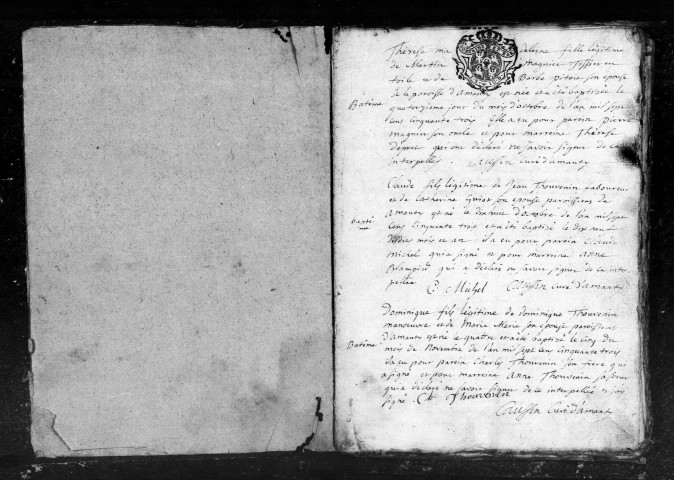 Thérèse madeleine fille légitime
de Martin magnier Tissier en
toile et de Barbe pitois son epouse
de la paroisse d'amanty est née et a été baptizée le
Batême
quatorzième jour du mois d'octobre de l'an mil sept
cens cinquante trois Elle a eu pour parein pierre
magnier son oncle et pour marreine Thérèse
qui ont déclaré ne savoir signer de ce
interpellés. Caussin curé d'amanty
Claude fils légitime de Jean Thouvenin laboureur
et de catherine son epouse paroissiens
amanty est né le d'octobre de l'an mil sept
baptême
cens cinquante trois et a été baptizé le dix neuf
desdits mois et an il a eu pour parein Claude
michel qui a signé et pour marreine anne
qui a déclaré ne savoir signer de ce inter-
pellée C. Michel Caussin curé d'amanty
Dominique fils légitime de dominique Thouvenin
manoeuvre et de Marie son epouse paroissiens
d'amanty est né le quatre et a été baptizé le cinq du
Batême
mois de Novembre de l'an mil sept cens cinquante trois
il a eu pour parein Charles Thouvenin son frère qui
a signé et pour marreine anne Thouvenin sa soeur
qui a déclaré ne savoir signer de ce interpellée
signé Ch Thouvenin
Caussin curé d'amanty